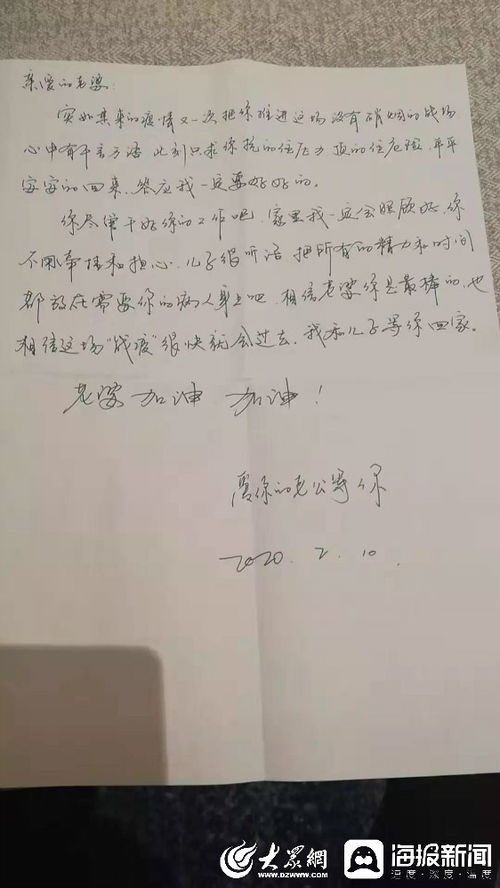 亲爱的老婆:
突如其来的疫情又一次把你推进这场没有硝烟的战场
心中有千言万语 此刻只求你抗的住压力 顶的住危险，平平
安安的回来，答应我一定要好好的。
你尽管干好你的工作吧，家里我一定会照顾好，你
不用牵挂和担心，儿子很听话，把所有的精力和时间
都放在需要你的病人身上吧，相信老婆你是最棒的，也
相信这场“战疫”很快就会过去，我和儿子等你回家。
老婆加油 加油！
爱你的老公等你
2020. 2. 10.
大众网
www.dzwww.com
海报新闻
速度·深度·温度